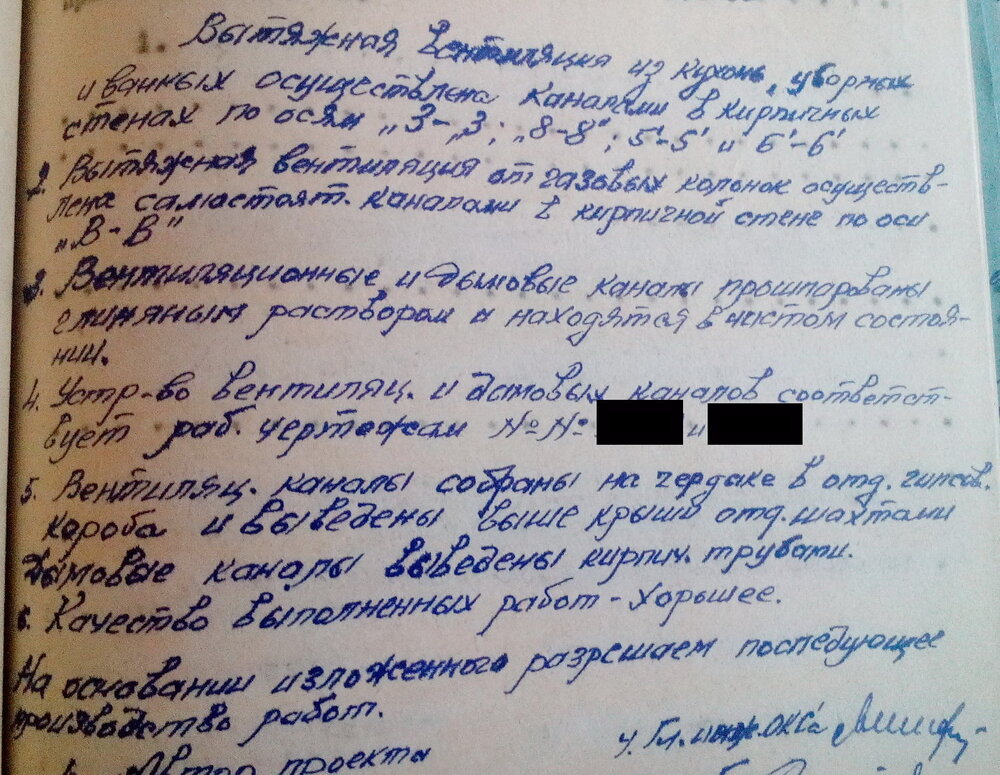 1. Вытяжная вентиляция из кухонь, уборных
и ванных осуществлена каналами в кирпичных
стенах по осям „3-„3; „8-8"; 5'-5' и 6'-6'
2. Вытяжная вентиляция от газовых колонок осуществ-
лена самостоят. каналами в кирпичной стене по оси
„В-В"
3. Вентиляционные и дымовые каналы прошпарованы
глиняным раствором и находятся в чистом состоя-
нии.
4. Устр-во вентиляц. и дымовых каналов соответст-
вует раб. чертежам №№ и
5. Вентиляц. каналы собраны на чердаке в отд. гипсов.
короба и выведены выше крыши отд. шахтами
Дымовые каналы выведены кирпич. трубами.
6. Качество выполненных работ - хорошее.
На основании изложенного разрешаем последующее
производство работ.
Гл. инж. ОКСа
Автор проекта